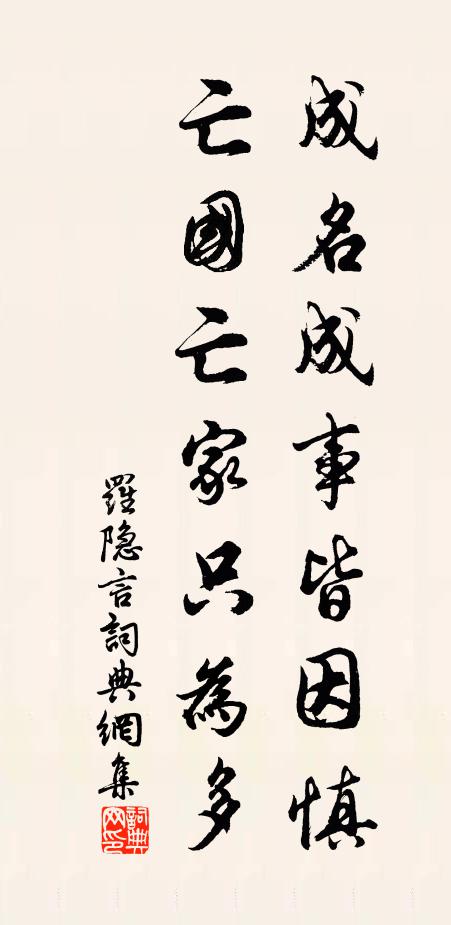 成名成事皆因慎
亡國亡家只為多
羅隐言詞典網集
詞典網印